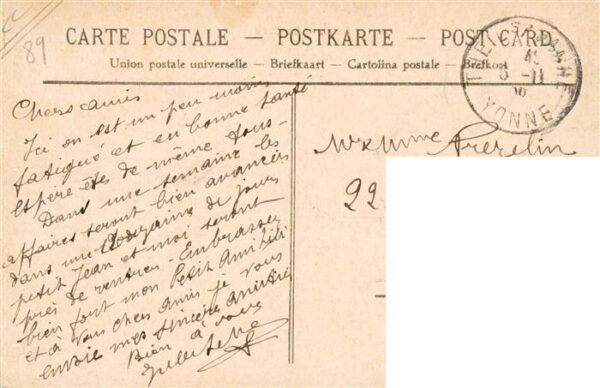 89
CARTE POSTALE – POSTKARTE – POST CARD
Union postale universelle – Briefkaart – Cartolina postale – Brefkort
YONNE
Chers amis
Ici on est un peu moins
fatigué et en bonne santé
espère êtes de même tous –
Dans une semaine les
affaires seront bien avancées
dans une douzaine de jours
petit Jean et moi seront
près de rentrer – Embrassez
bien fort mon Petit Ami
et à vous chers amis je vous
envoie mes sincères amitiés
Bien à vous
Mr & Mme
22